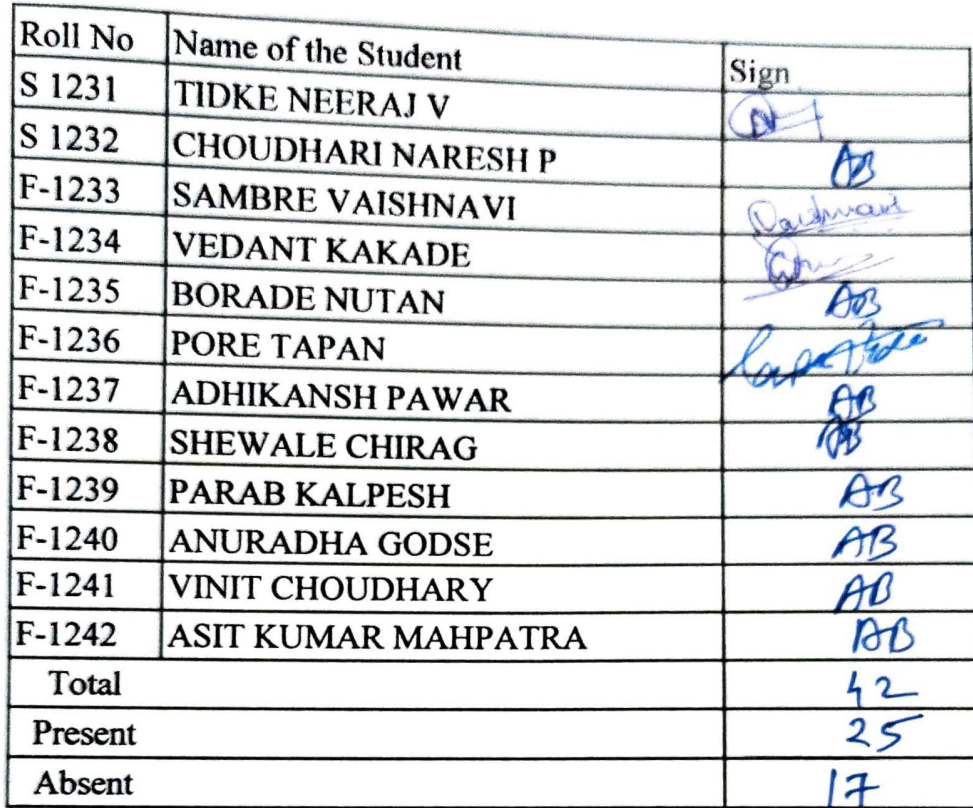 Roll No Name of the Student Sign
S 1231 TIDKE NEERAJ V
S 1232 CHOUDHARI NARESH P AB
F-1233 SAMBRE VAISHNAVI Vaishnavi
F-1234 VEDANT KAKADE
F-1235 BORADE NUTAN AB
F-1236 PORE TAPAN
F-1237 ADHIKANSH PAWAR AB
F-1238 SHEWALE CHIRAG AB
F-1239 PARAB KALPESH AB
F-1240 ANURADHA GODSE AB
F-1241 VINIT CHOUDHARY AB
F-1242 ASIT KUMAR MAHPATRA AB
Total 42
Present 25
Absent 17